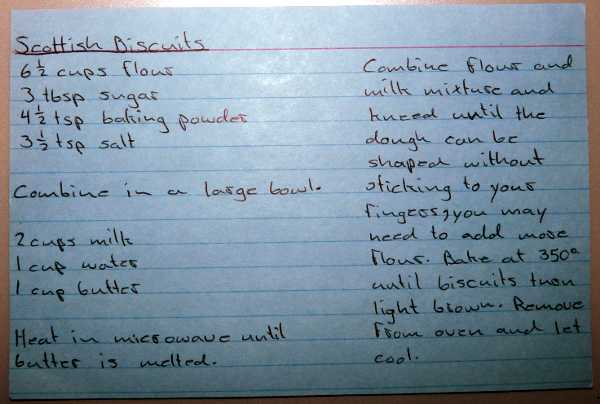 Scottish Biscuits
6 1/2 cups flour
3 tbsp sugar
4 1/2 tsp baking powder
3 1/2 tsp salt
Combine in a large bowl.
2 cups milk
1 cup water
1 cup butter
Heat in microwave until
butter is melted.
Combine flour and
milk mixture and
kneed until the
dough can be
shaped without
sticking to your
fingers, you may
need to add more
flour. Bake at 350°
until biscuits turn
light brown. Remove
from oven and let
cool.